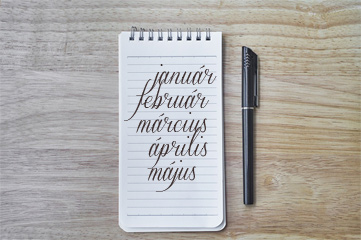 január
február
március
április
május